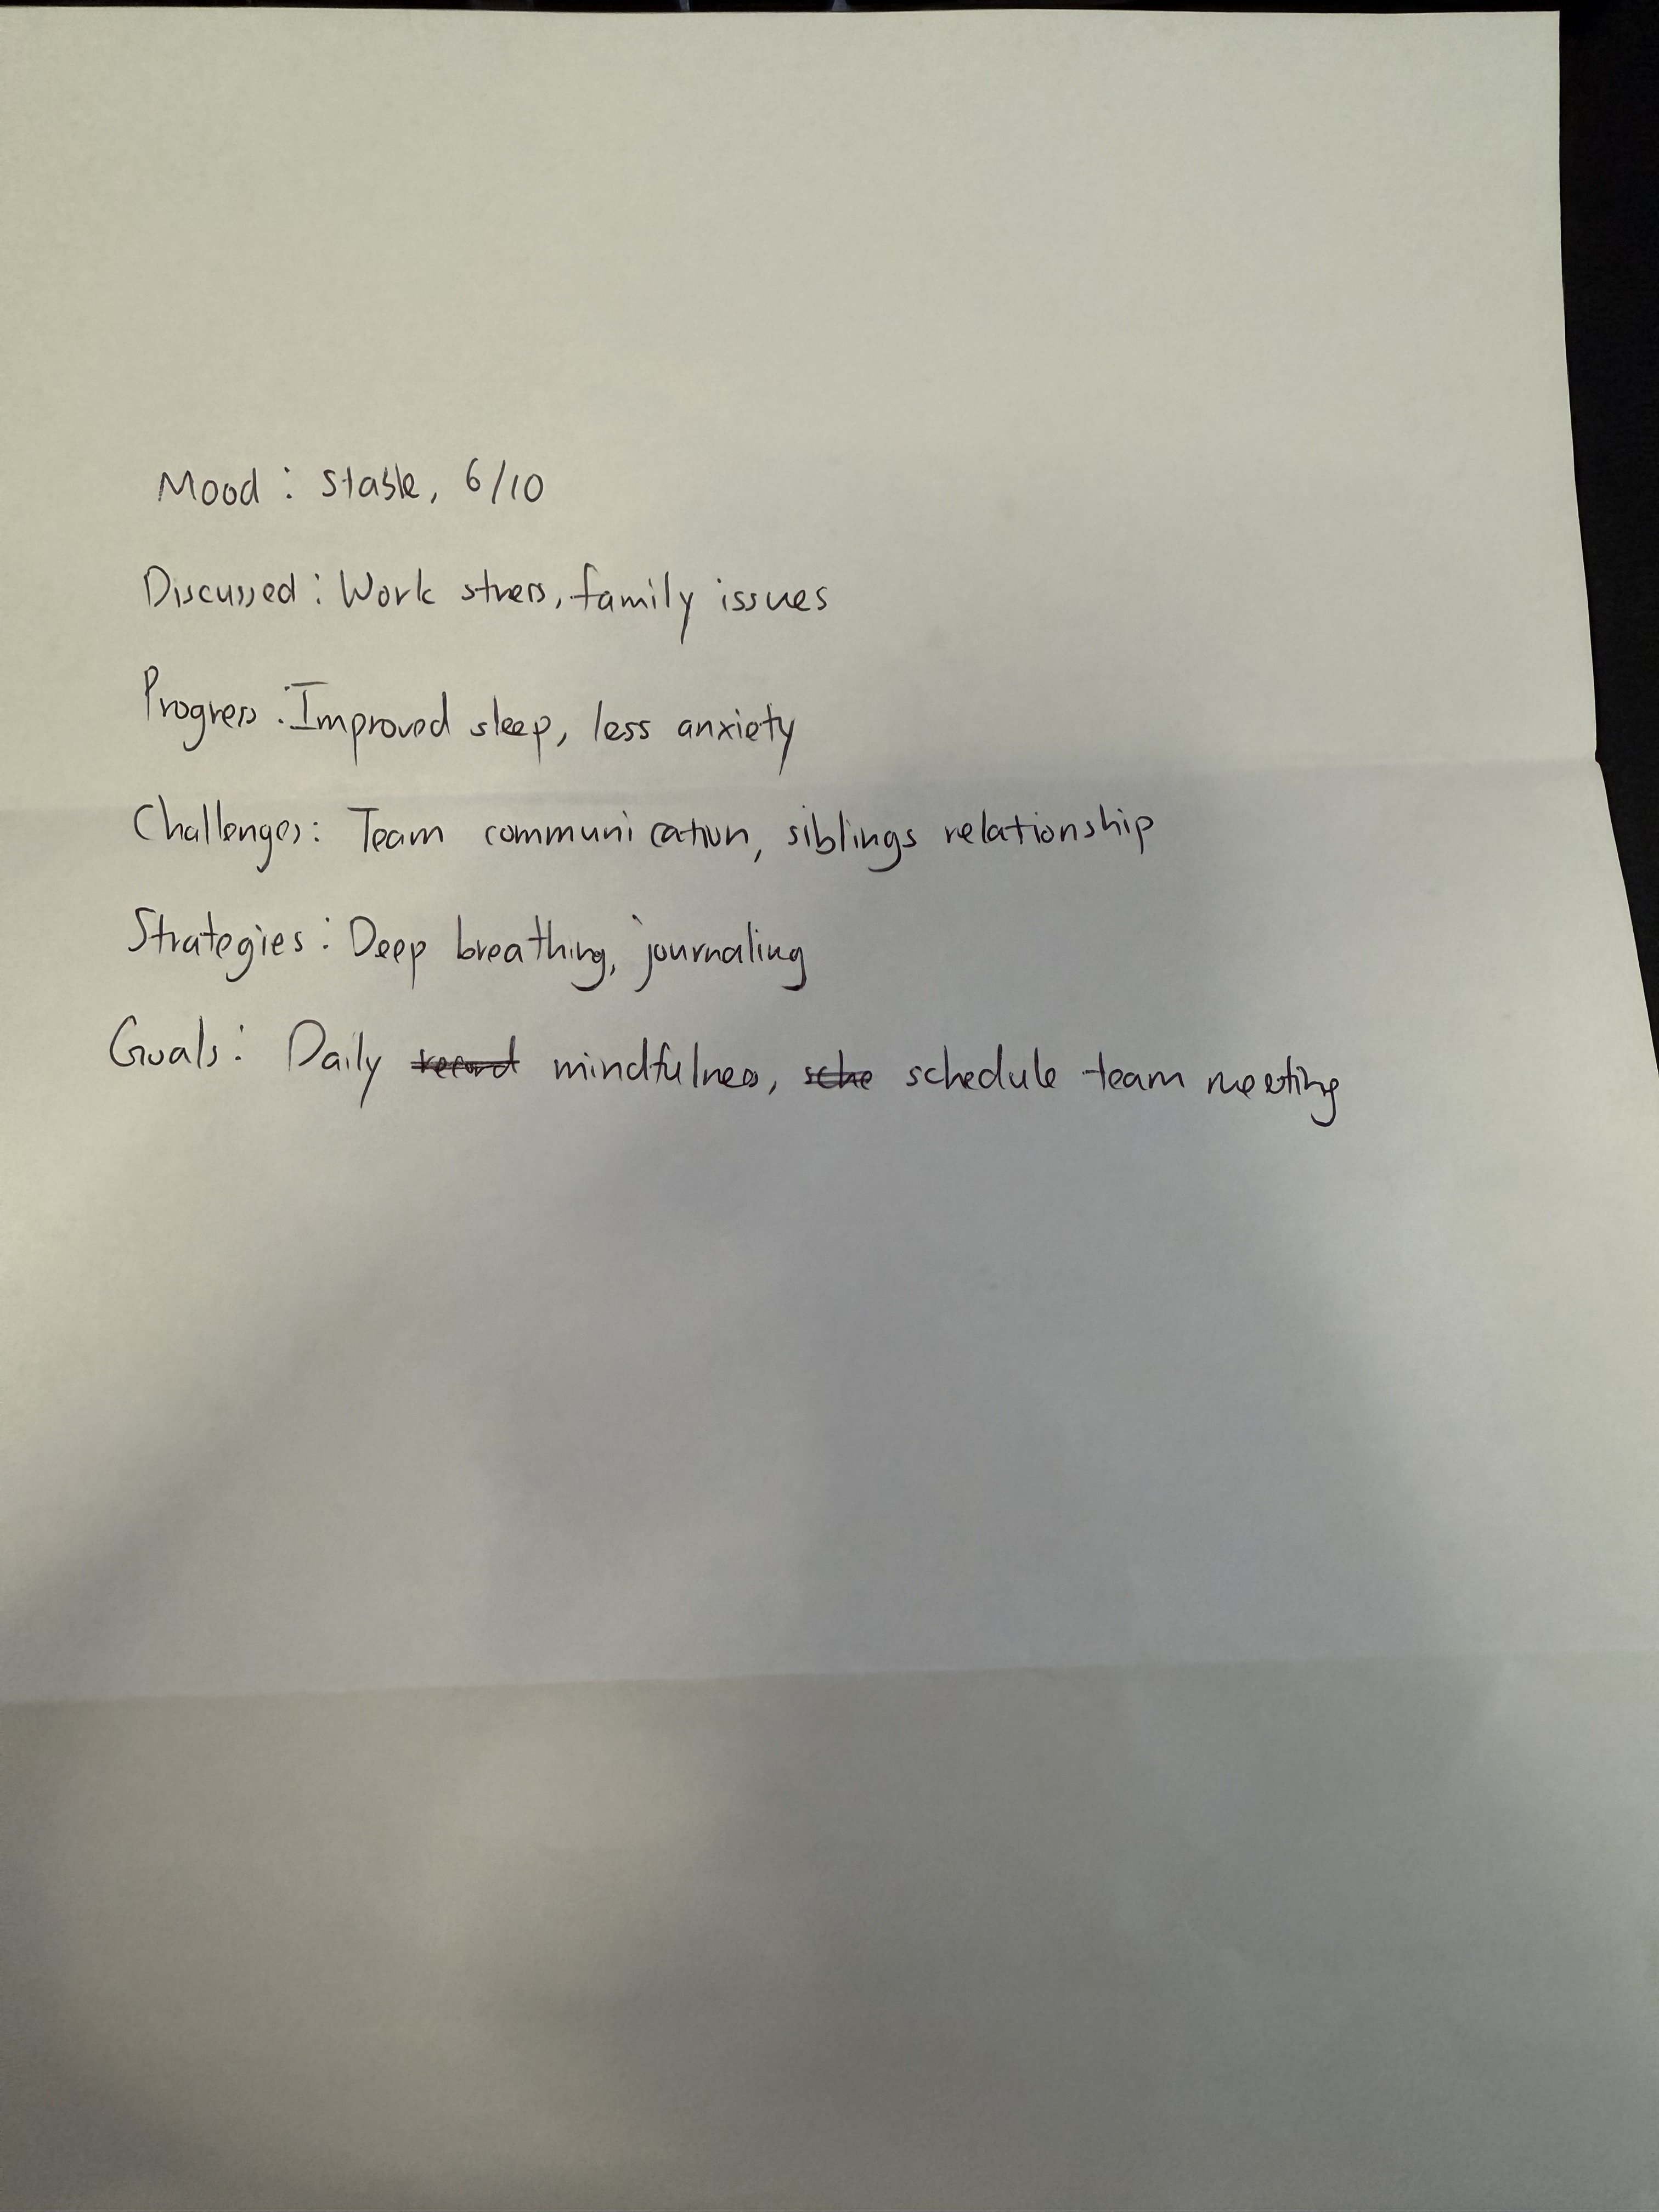 Mood: stable, 6/10
Discussed: Work stress, family issues
Progress: Improved sleep, less anxiety
Challenges: Team communication, siblings relationship
Strategies: Deep breathing, journaling
Goals: Daily record mindfulness, sche schedule team meeting